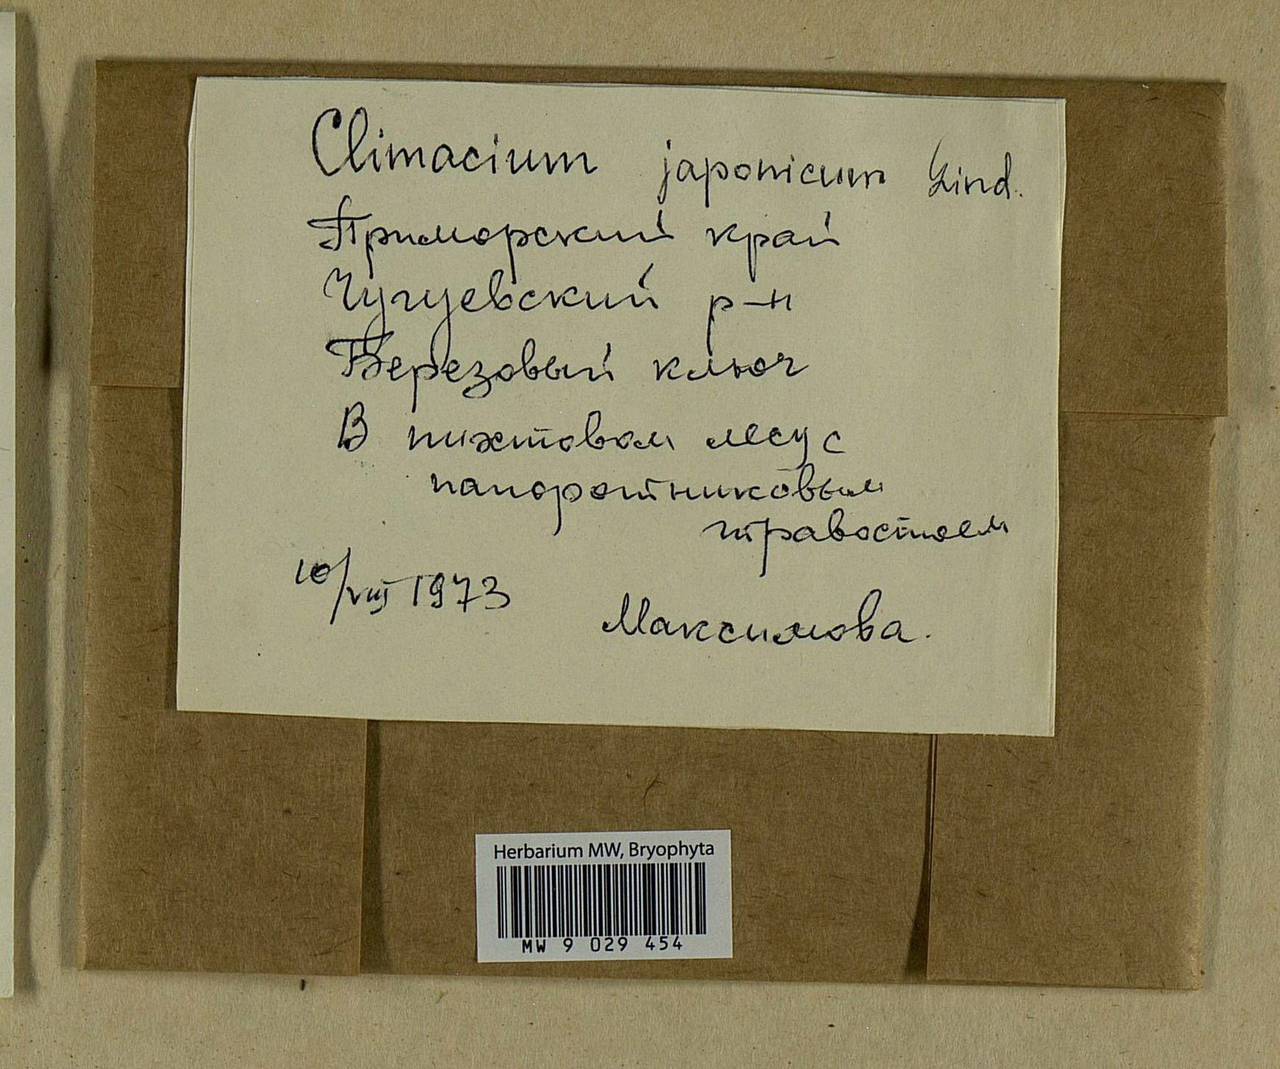 Climacium japonicum Lind.
Приморский край
Чугуевский р-н
Березовый ключ
В пихтовом лесу с
папоротниковым
травостоем
10/VIII 1973
Максимова.
Herbarium MW, Bryophyta
MW 9 029 454